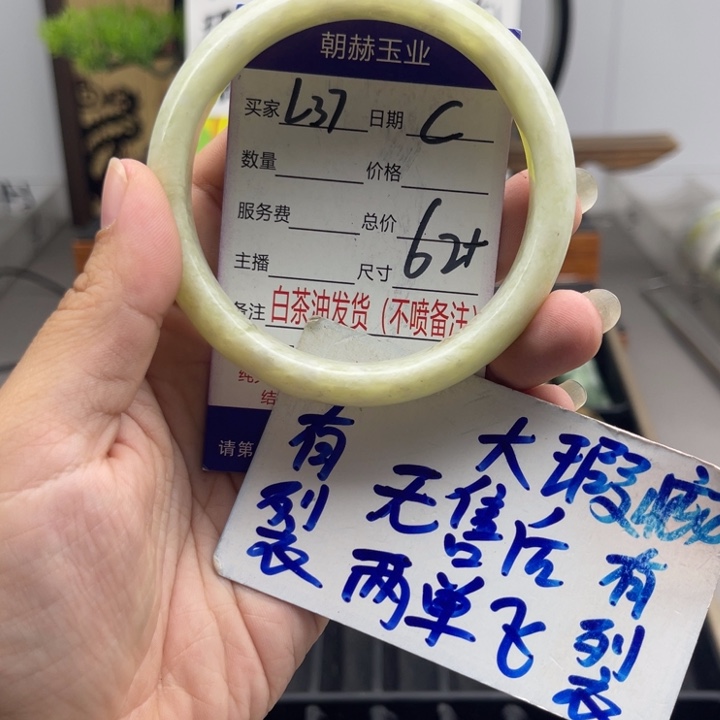 朝赫玉业
买家 L37 日期 C
数量 价格
服务费 总价
主播 尺寸 62+
备注 白茶油发货（不喷备注）
结
请第
大瑕疵
无售后
两单飞
有列衣
有列衣